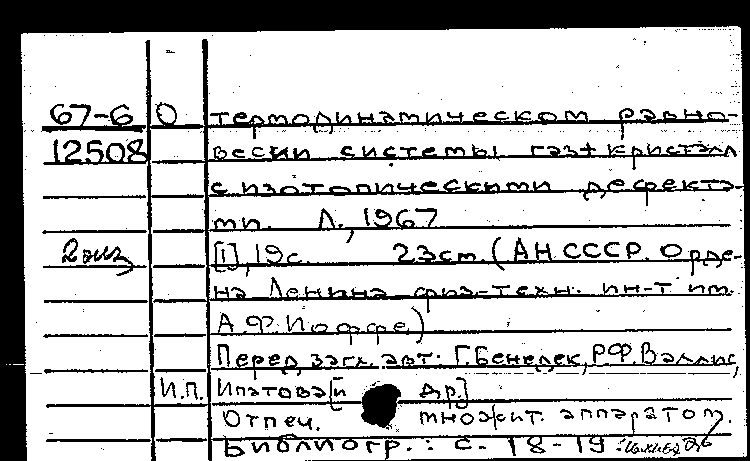 67-6 О термодинамическом равно-
12508 весии системы газ+кристалл
с изотопическими дефекта-
ми. Л., 1967
2 экз [1], 19с. 23см. (АН СССР. Орде-
на Ленина физ-техн. ин-т им.
А.Ф.Иоффе)
Перед загл. авт: Г.Бенедек, Р.Ф.Валлис,
И.П. Ипатова [и др.]
Отпеч. множит. аппаратом.
Библиогр.: с. 18-19